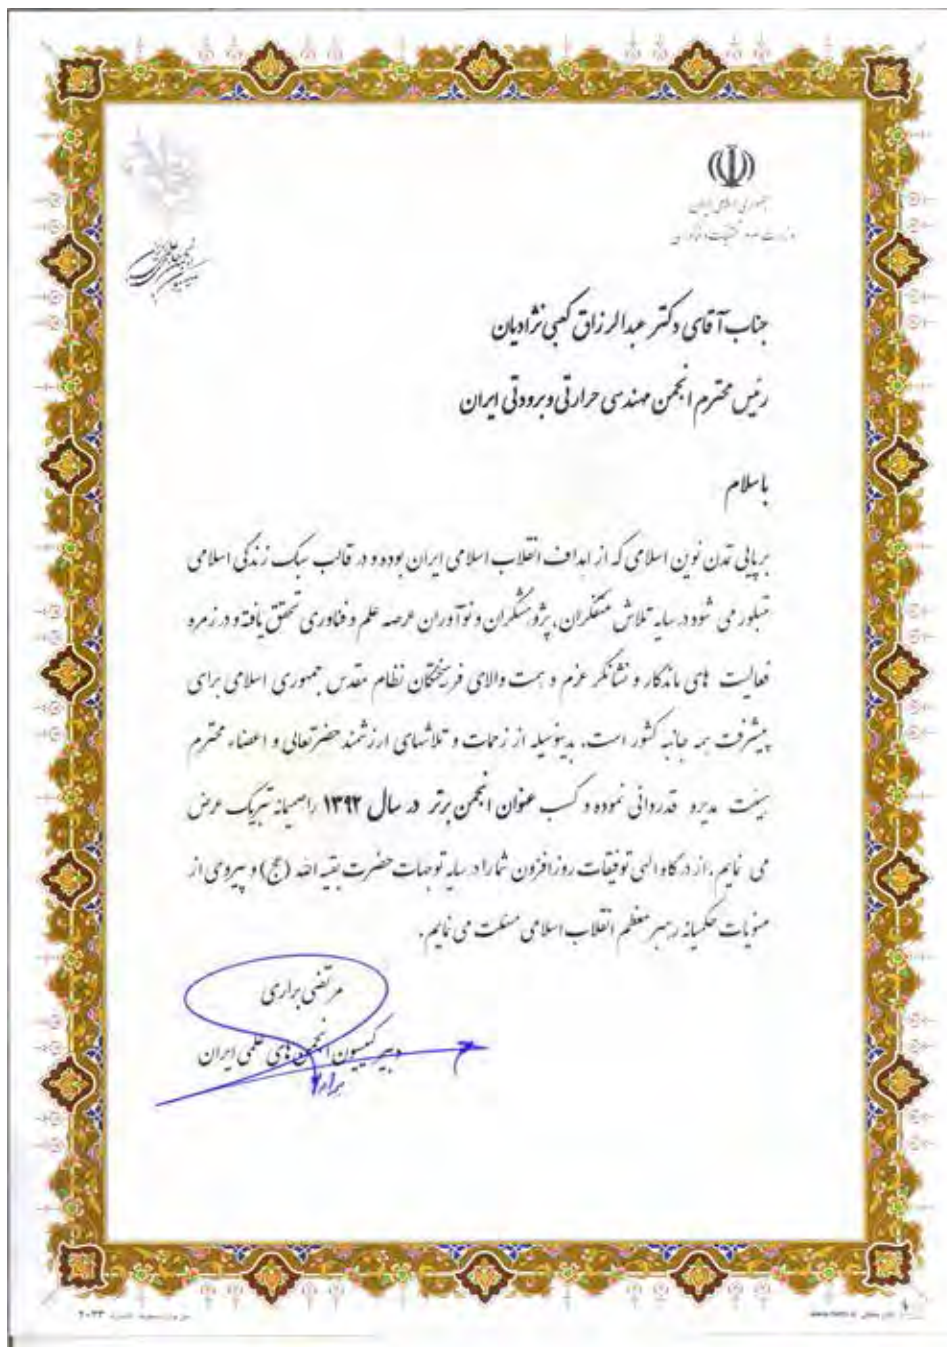 جمهوری اسلامی ایران
وزارت علوم، تحقیقات و فناوری
جناب آقای دکتر عبدالرزاق کعبی نژادیان
رئیس محترم انجمن مهندسی حرارتی و برودتی ایران
باسلام
برپائی تمدن نوین اسلامی که از اهداف انقلاب اسلامی ایران بوده و در قالب سبک زندگی اسلامی
متبلور می شود در سایه تلاش متفکران، پژوهشگران و نوآوران عرصه علم و فناوری تحقق یافته و در زمره
فعالیت های ماندگار و نشانگر عزم و همت والای فرهیختگان نظام مقدس جمهوری اسلامی برای
پیشرفت همه جانبه کشور است. بدینوسیله از زحمات و تلاشهای ارزشمند حضرتعالی و اعضاء محترم
هیئت مدیره قدردانی نموده و کسب عنوان انجمن برتر در سال ۱۳۹۲ را صمیمانه تبریک عرض
می نمایم. از درگاه الهی توفیقات روزافزون شما را در سایه توجهات حضرت بقیه الله (عج) و پیروی از
منویات حکیمانه رهبر معظم انقلاب اسلامی مسئلت می نمایم.
مرتضی براری
دبیر کمیسیون انجمن های علمی ایران